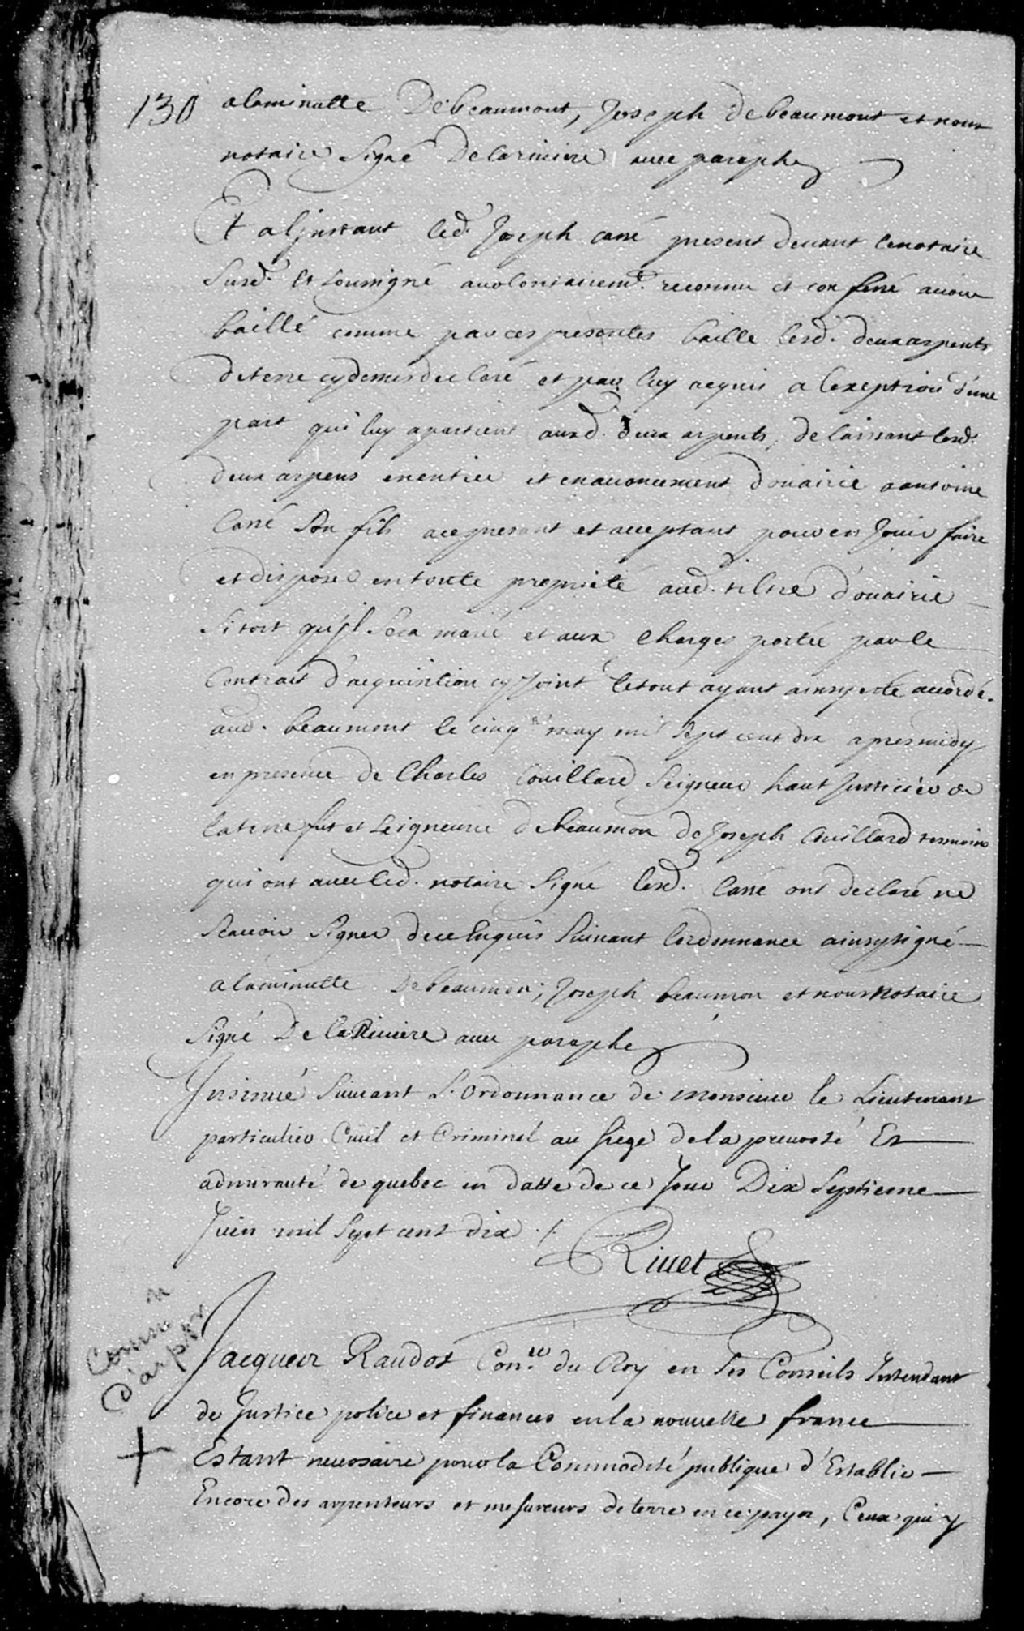 130 alaminutte Debeaumont, Joseph debeaumont et nous
notaire Signé Delariviere avec paraphe
Et aljnstant led. Joseph carré present devant lenotaire
Surd. et Sousigné avolontairemt. reconnu et confessé avoir
baillé comme par ces presentes baille lesd. deux arpents
deterre cydenusdeclaré et par luy acquis a lexeption d'une
part qui luy apartient auxd. deux arpents, delaissant lesd.
deux arpens enentier et enavancement douairie aantoine
Carré Son fils acepresent et acceptant pour en Jouir faire
et disposer entoutte propriété aud. tiltre douairie
Sitost qu'jl Sera marié et aux charges portée par le
Contrait d'acquisition cy Joint letout ayant ainsy esté accordé.
aud. beaumont le cinqe may mil Sept cent dix apres midy
en presence de Charles Couillard Seigneur haut Justicier de
laterre fief et Seigneurie debeaumon de Joseph Couillard temoins
qui ont avec led. notaire Signé lesd. Carré ont declaré ne
Scavoir Signer dece Enquis Suivant lordonnance ainsysigné
alaminutte Debeaumon, Joseph beaumon et nous Notaire
Signé De la Riviere avec paraphe
Jnsinué Suivant L'Ordonnance de Monsieur le Lieutenant
particulier Civil et Criminel au Siege de la prevosté Et
admirauté de quebec en datte de ce Jour Dix Septieme
Juin mil Sept cent dix ./.
Rivet
Commn
d'arpr
+
Jacques Raudot Coner. du Roy en Ses Conseils Intendant
de Justice police et finances en la nouvelle france
Estant necessaire pour la Commodité publique d'Establir
Encore des arpenteurs et mesureurs de terre en ce pays, Ceux qui y